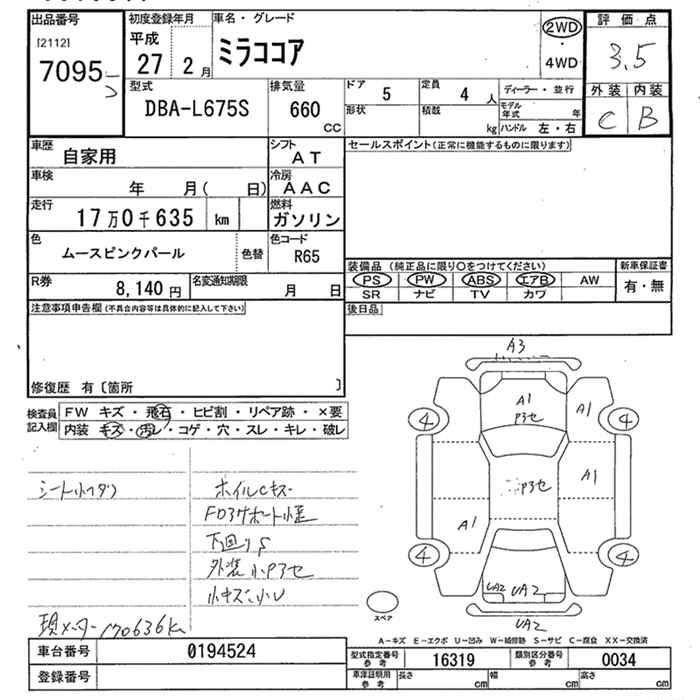 出品番号
[2112]
7095
初度登録年月
平成
27 2月
車名・グレード
ミラココア
2WD
・
4WD
評価点
3.5
外装 内装
C B
型式
DBA-L675S
排気量
660
CC
ドア 5
定員 4 人
形状
積載 kg
ディーラー・並行
モデル年式 年
ハンドル 左・右
車歴
自家用
シフト
AT
車検
年 月( 日)
冷房
AAC
走行
17万0千635 km
燃料
ガソリン
色
ムースピンクパール
色替
色コード
R65
R券
8,140円
名変通知期限
月 日
セールスポイント(正常に機能するものに限ります)
装備品 (純正品に限り〇をつけてください)
新車保証書
PS PW ABS エアB AW
SR ナビ TV カワ
有・無
後日品
注意事項申告欄(不具合内容等は具体的に記入して下さい)
修復歴 有〔箇所 〕
検査員記入欄
FW キズ・飛石・ヒビ割・リペア跡・×要
内装 キズ・汚レ・コゲ・穴・スレ・キレ・破レ
ホイルCキズ
下回りS
現メーター170636km
A3
A1
A1
A1
A1
4
4
4
4
UA2
UA2
UA2
スペア
A-キズ E-エクボ U-凹み W-補修跡 S-サビ C-腐食 XX-交換済
車台番号 0194524
登録番号
型式指定番号参考 16319
類別区分番号参考 0034
車庫証明用参考
長さ cm
幅 cm
高さ cm